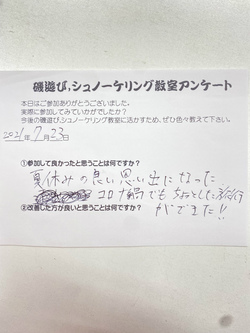 磯遊び,シュノーケリング教室アンケート
本日はご参加ありがとうございました。
実際に参加してみていかがでしたか?
今後の磯遊び,シュノーケリング教室に活かすため、ぜひ色々教えて下さい。
2021年7月23日
①参加して良かったと思うことは何ですか?
夏休みの良い思い出になった
コロナ禍でもちょっとした旅行
②改善した方が良いと思うことは何ですか?
ができた!!